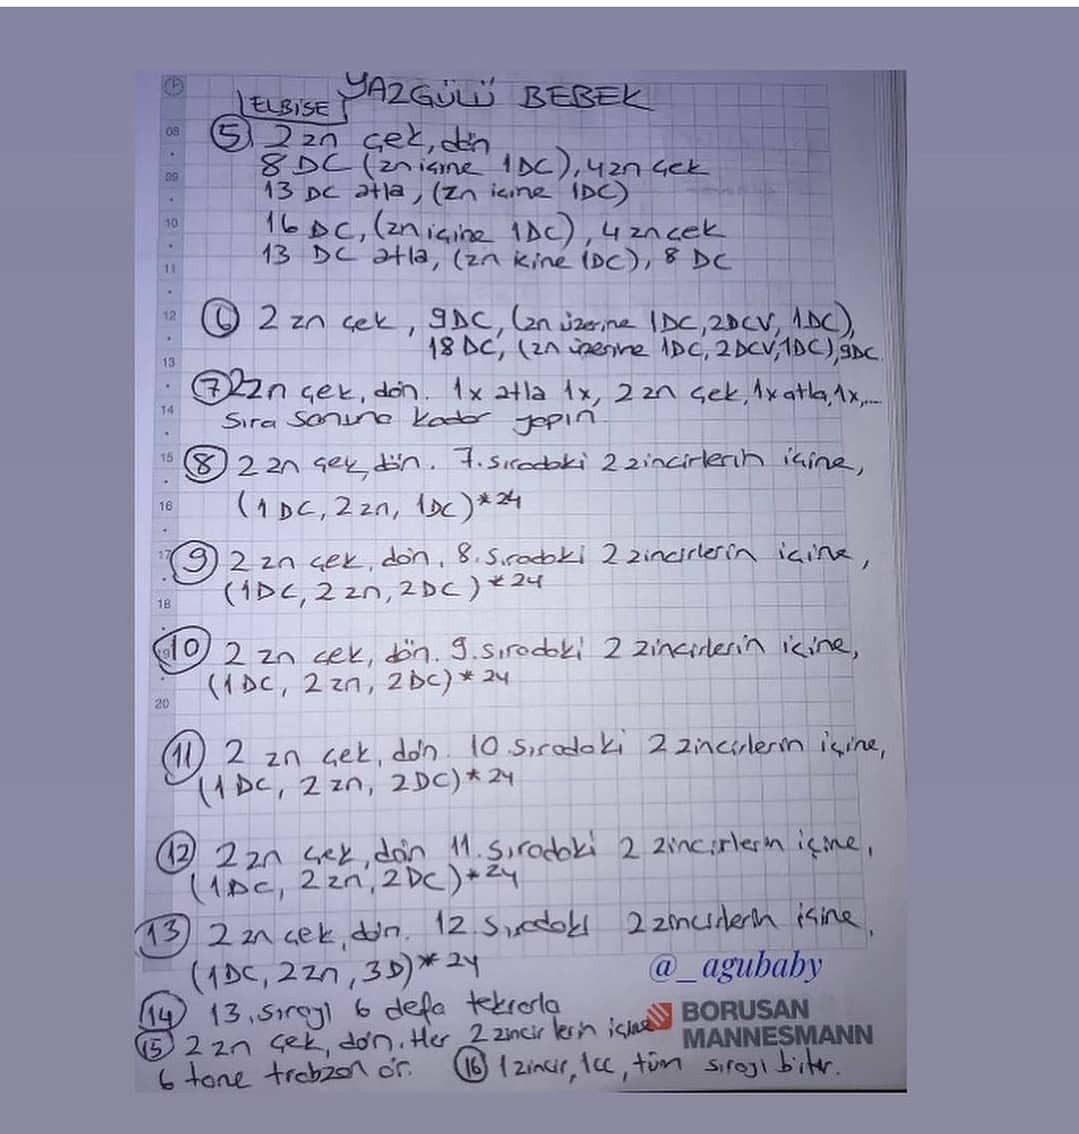 YAZGÜLÜ BEBEK
ELBİSE
08
5 2 zn çek, dön
8 DC (zn içine 1DC), 4 zn çek
09
13 DC atla, (zn içine 1DC)
10
16 DC, (zn içine 1DC), 4 zn çek
11
13 DC atla, (zn içine 1DC), 8 DC
12
6 2 zn çek, 9DC, (zn üzerine 1DC, 2DCV, 1DC),
18 DC, (zn üzerine 1DC, 2DCV, 1DC), 9DC.
13
7 2 zn çek, dön. 1x atla 1x, 2 zn çek, 1x atla, 1x,....
14
Sıra sonuna kadar yapın.
15
8 2 zn çek, dön. 7. sıradaki 2 zincirlerin içine,
16
(1 DC, 2 zn, 1DC)*24
17
9 2 zn çek, dön, 8. sıradaki 2 zincirlerin içine,
(1DC, 2 zn, 2DC)*24
18
10 2 zn çek, dön. 9. sıradaki 2 zincirlerin içine,
(1DC, 2 zn, 2DC)*24
20
11 2 zn çek, dön. 10. sıradaki 2 zincirlerin içine,
(1DC, 2 zn, 2DC)*24
12 2 zn çek, dön 11. sıradaki 2 zincirlerin içine,
(1DC, 2 zn, 2DC)*24
13 2 zn çek, dön. 12. sıradaki 2 zincirlerin içine,
(1DC, 2 zn, 3D)*24
@_agubaby
14 13. sırayı 6 defa tekrarla
BORUSAN
MANNESMANN
15 2 zn çek, dön. Her 2 zincirlerin içine
6 tane trabzan ör. 16 1 zincir, 1cc, tüm sırayı bitir.